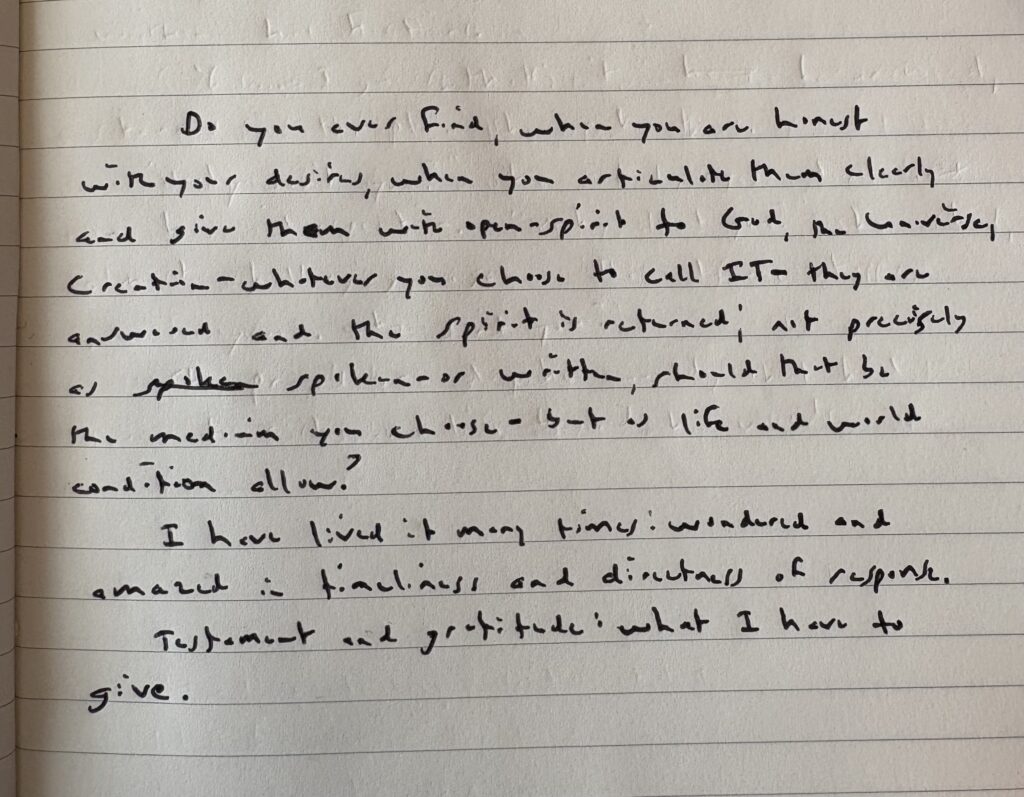 Do you ever find, when you are honest
with your desires, when you articulate them clearly
and give them with open-spirit to God, the Universe,
Creation-whatever you choose to call IT- they are
answered and the spirit is returned; not precisely
as spoken spoken-or written, should that be
the medium you choose- but as life and world
condition allow?
I have lived it many times: wondered and
amazed in timeliness and directness of response.
Testament and gratitude: what I have to
give.